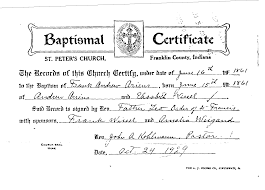 Baptismal Certificate
ST. PETER'S CHURCH, Franklin County, Indiana
The Records of this Church Certify, under date of June 16th 1861
to the Baptism of Frank Andrew Ariens born June 15th 1861
of Andrew Ariens and Elisabeth
Said Record is signed by Rev. Father Leo Order of St Francis
with sponsors, Frank and Amalia Wiegand
Rev. John A. Pastor
Date, Oct 24 1929